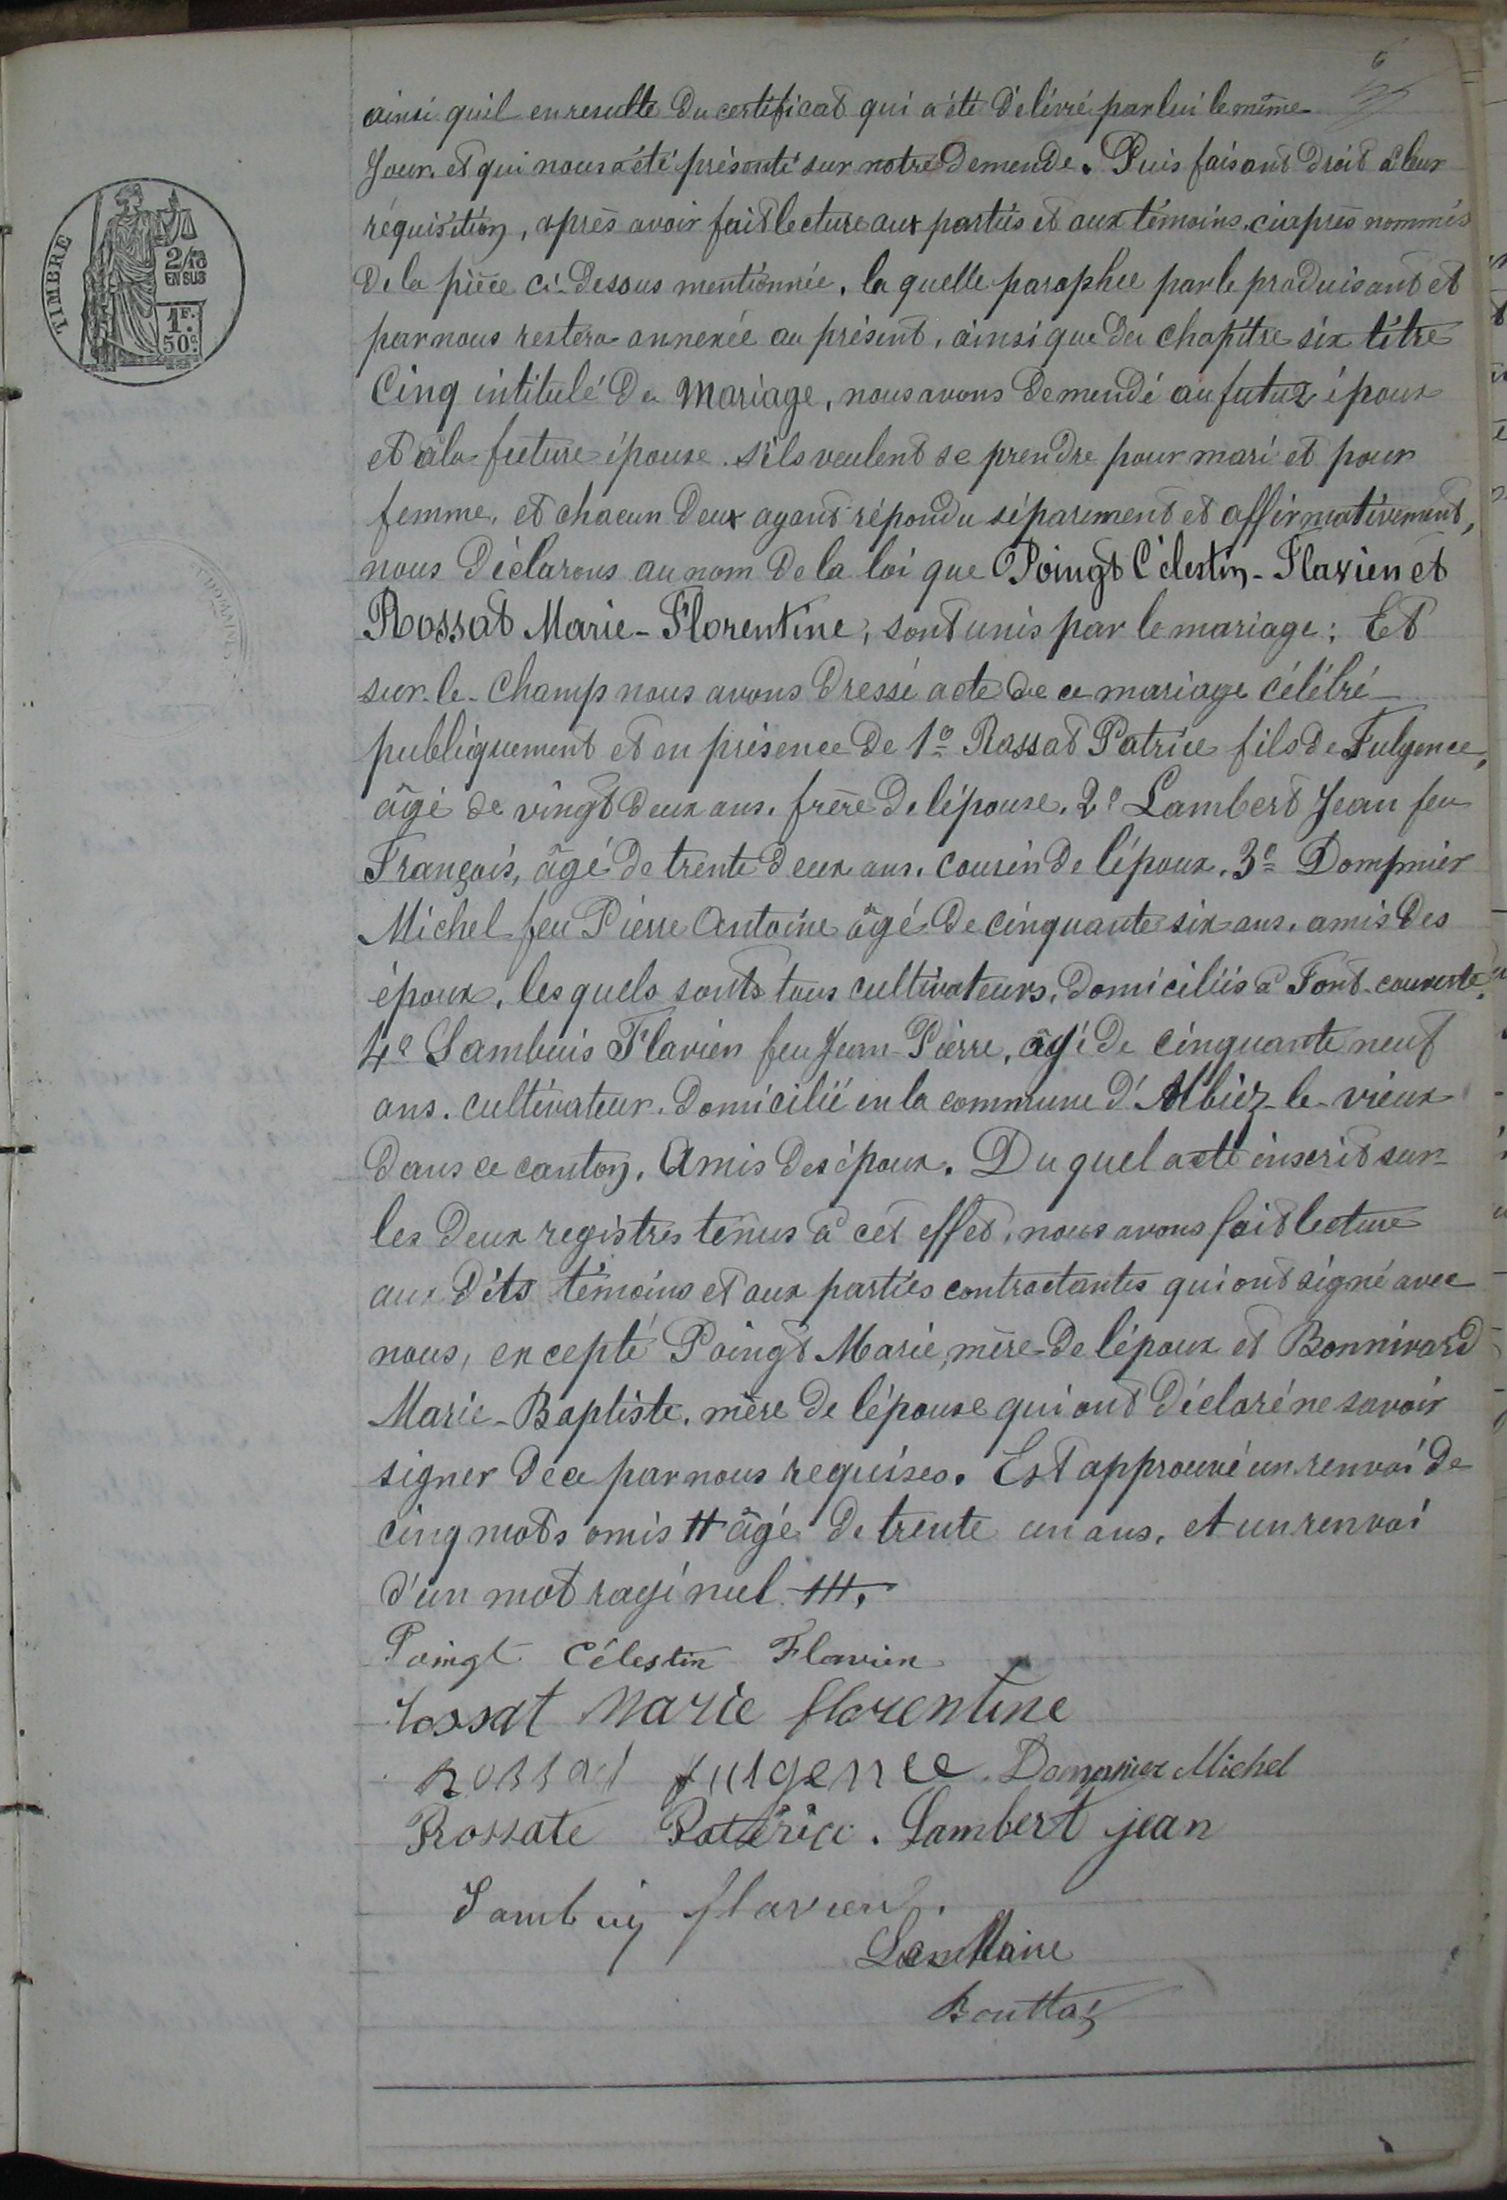 6
TIMBRE
2/10
EN SUS
1F.
50c
ainsi quil en resulte du certificat qui a été délivré par lui le même
Jour et qui nous a été présenté sur notre demende. Puis faisant droit à leur
réquisition, après avoir fait lecture aux parties et aux témoins ciaprès nommés
de la pièce ci-dessus mentionnée, la quelle paraphée par le produisant et
par nous restera annexée au présent, ainsi que du chapitre six titre
Cinq intitulé du Mariage, nous avons demendé au futur époux
et à la future épouse s'ils veulent se prendre pour mari et pour
femme, et chacun deux ayant répondu séparement et affirmativement,
nous déclarons au nom de la loi que Poingt Célestin-Flavien et
Rossat Marie-Florentine, sont unis par le mariage; Et
sur-le-Champ nous avons dressé acte de ce mariage célébré
publiquement et en présence de 1o Rossat Patrice fils de Fulgence,
âgé de vingt deux ans, frère de l'épouse, 2o Lambert Jean feu
François, âgé de trente deux ans, cousin de l'époux, 3o Dompnier
Michel feu Pierre Antoine âgé de cinquante six ans, amis des
époux, les quels sonts tous cultivateurs, domiciliés à Font-couverte,
4o Sambuis Flavien feu Jean-Pierre, âgé de cinquante neuf
ans, cultivateur, domicilié en la commune d'Albiez-le-vieux
dans ce canton, Amis des époux. Du quel acte inscrit sur
les deux registres tenus à cet effet, nous avons fait lecture
aux dits témoins et aux parties contractantes qui ont signé avec
nous, excepté Poingt Marie, mère de l'époux et Bonnivard
Marie-Baptiste, mère de l'épouse qui ont déclaré ne savoir
signer de ce par nous requises. Est approuvé un renvoi de
cinq mots omis ++ âgé de trente un ans, et un renvoi
d'un mot rayé nul +++.
Poingt Célestin Flavien
Rossat Marie florentine
Rossat fulgence. Dompnier Michel
Rossate Paterice. Lambert jean
Sambuis flavien.
Le Maire
Bouttaz